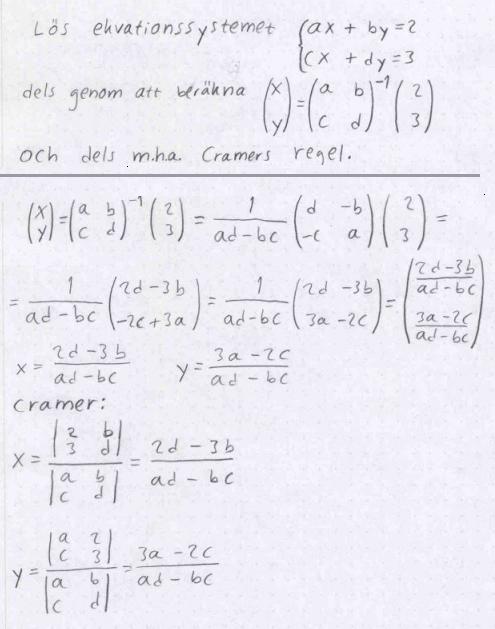 Lös ekvationssystemet {ax + by = 2
cx + dy = 3
dels genom att beräkna (x y) = (a b c d)^-1 (2 3)
och dels m.h.a. Cramers regel.
(x y) = (a b c d)^-1 (2 3) = 1/(ad-bc) (d -b -c a) (2 3) =
= 1/(ad-bc) (2d-3b -2c+3a) = 1/(ad-bc) (2d-3b 3a-2c) = ((2d-3b)/(ad-bc) (3a-2c)/(ad-bc))
x = (2d-3b)/(ad-bc) y = (3a-2c)/(ad-bc)
Cramer:
x = |2 b 3 d| / |a b c d| = (2d-3b)/(ad-bc)
y = |a 2 c 3| / |a b c d| = (3a-2c)/(ad-bc)